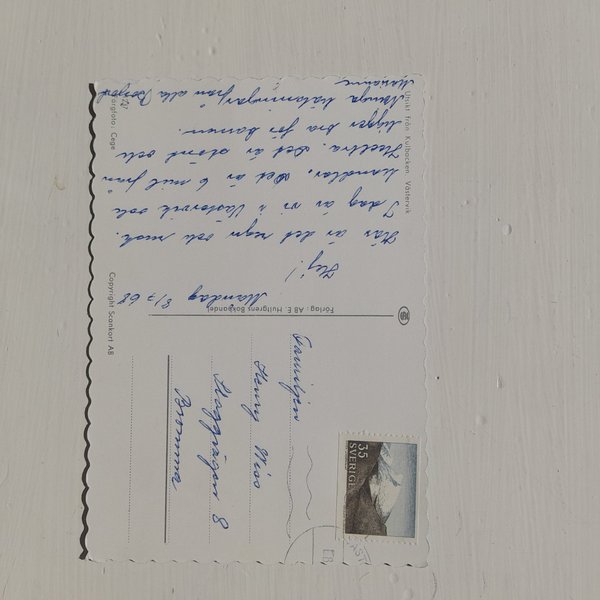 Utsikt från Kulbacken. Västervik
Måndag 8/7 68
Hej!
Här är det regn och rusk.
I dag är vi i Västervik och
handlar. Det är 6 mil från
Det är skönt och
ligger bra för barnen.
Många hälsningar från alla
Marianne
Färgfoto: Cege
Copyright Scankort AB
Förlag: AB E. Hultgrens Bokhandel
Familjen
Henry
8
Bromma
35
SVERIGE